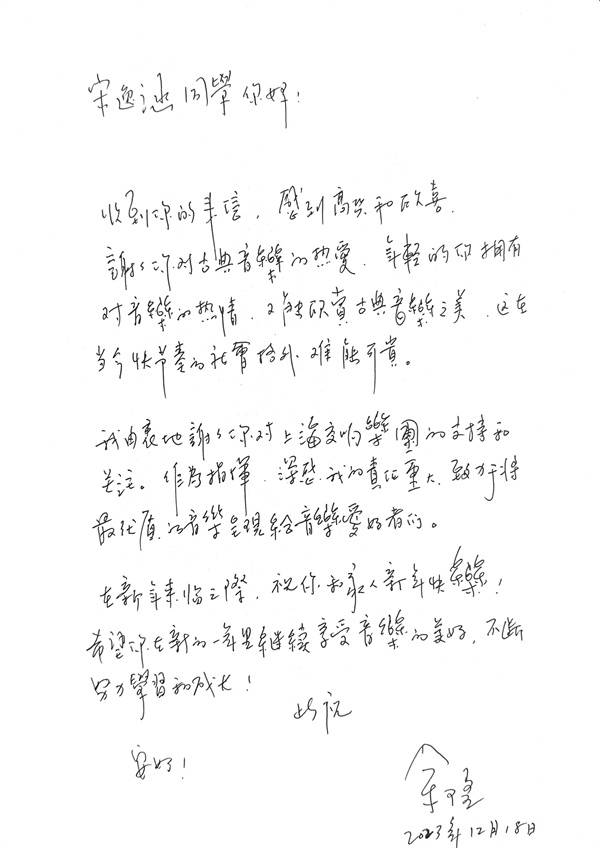 宋逸涵同學你好！
收到你的来信，感到高興和欣喜，
謝谢你对古典音樂的热愛，年輕的你拥有
对音樂的热情，又能欣賞古典音樂之美，这在
当今快节奏的社會格外难能可貴。
我由衷地謝谢你对上海交响樂團的支持和
关注。作为指揮，深感我的責任重大，致力于将
最优质的音樂呈現給音樂愛好者们。
在新年来临之際，祝你和家人新年快樂！
希望你在新的一年里继续享受音樂的美好，不断
努力學習和成长！
此祝
安好！
余隆
2023年12月18日